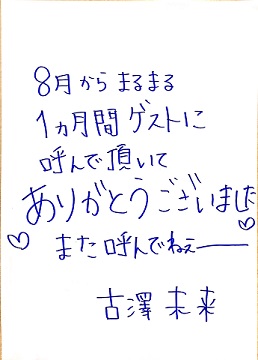 8月から まるまる
1ヵ月間 ゲストに
呼んで頂いて
ありがとうございました
♡ また 呼んでねぇ── ♡
古澤 未来